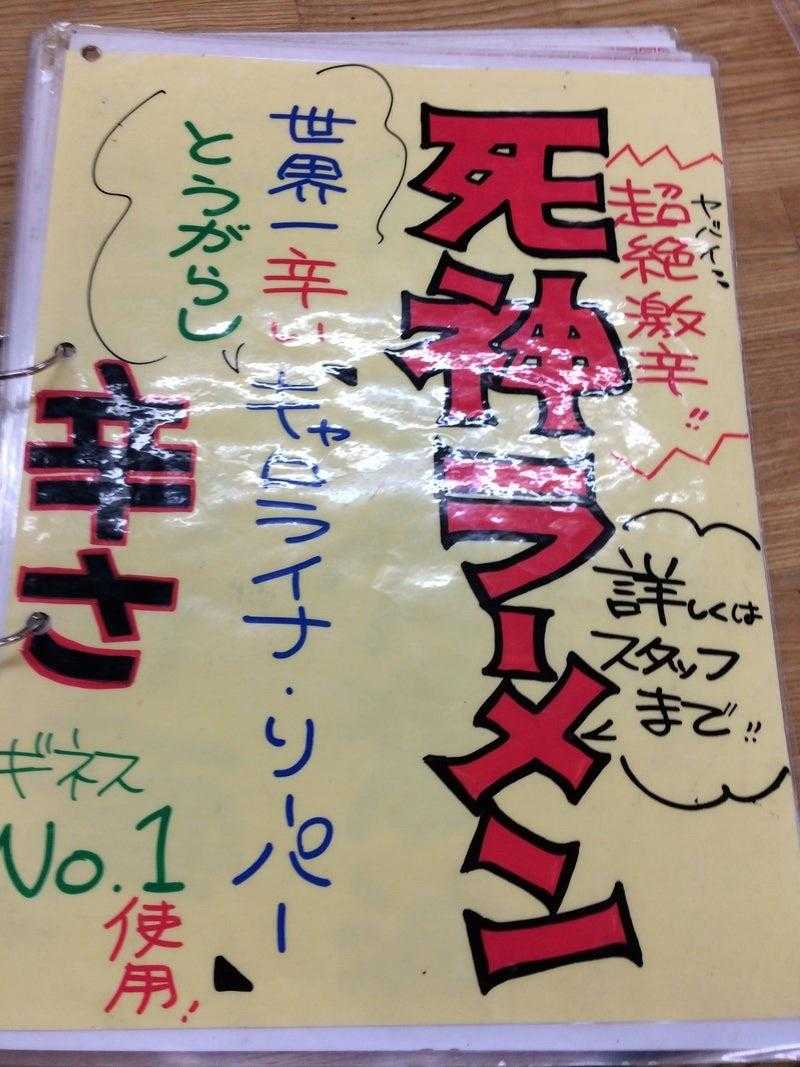 ヤバイ!!
超絶激辛!!
死神ラーメン
詳しくは
スタッフ
まで!!
世界一辛い
とうがらし
キャロライナ・リーパー
辛さ
ギネス
No.1
使用!